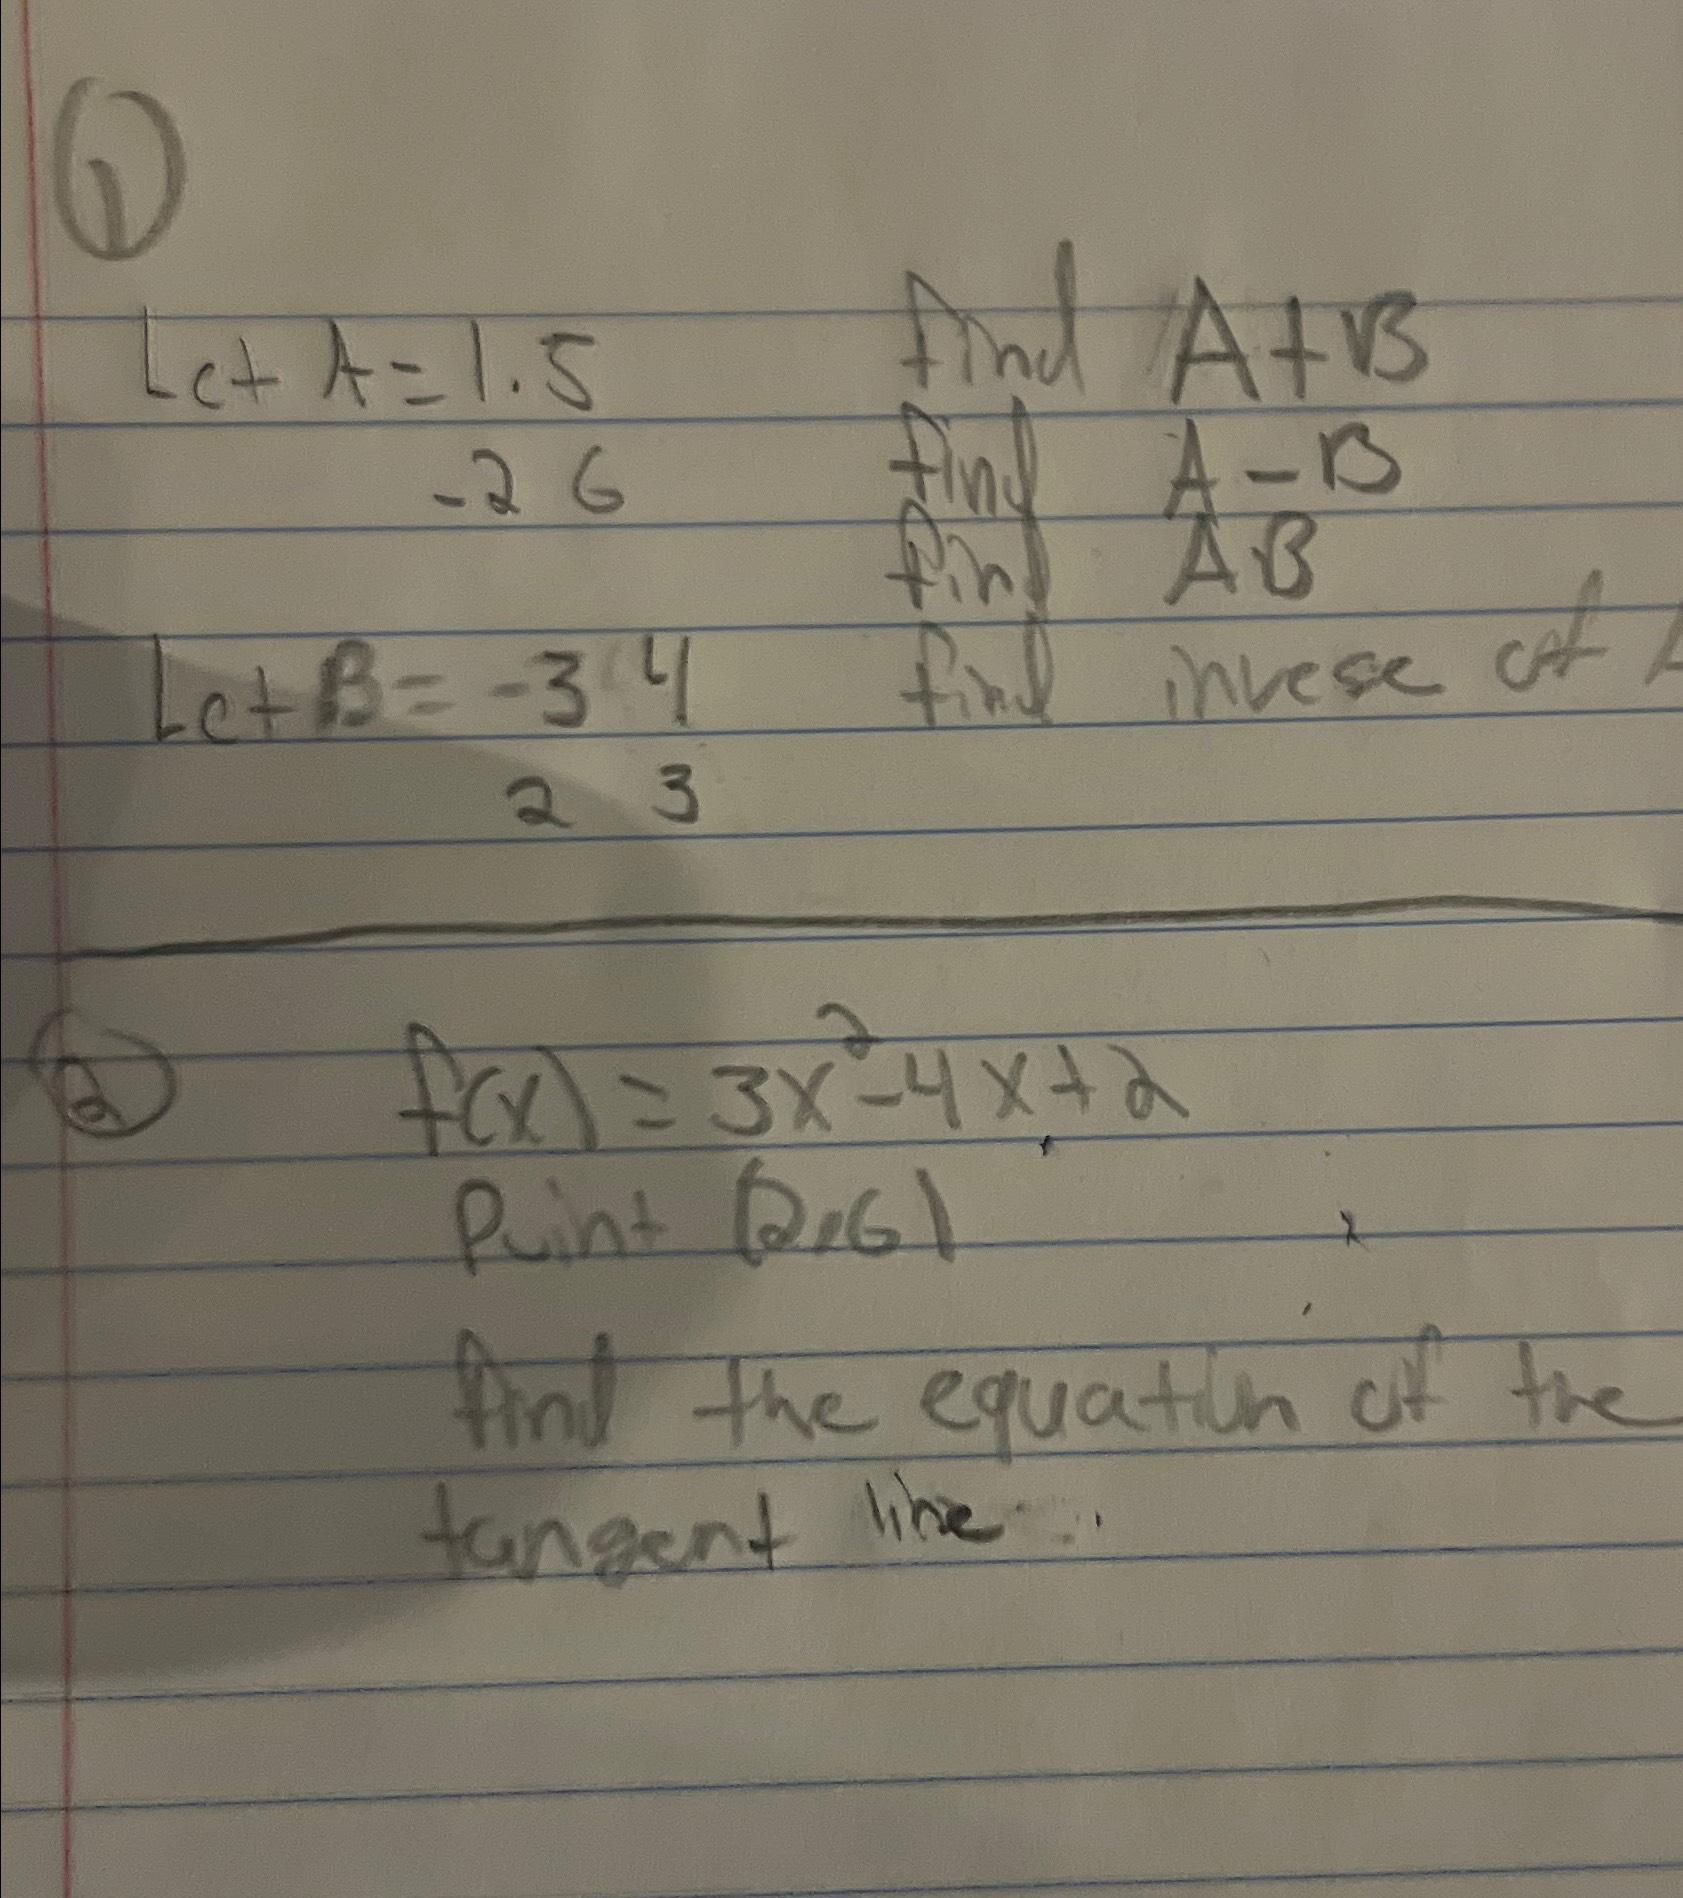 1
Let A = 1.5 find A+B
-2 6 find A-B
find AB
Let B = -3 4 find invese of
2 3
2 f(x) = 3x²-4x+2
Point (2,6)
find the equation of the
tangent line.